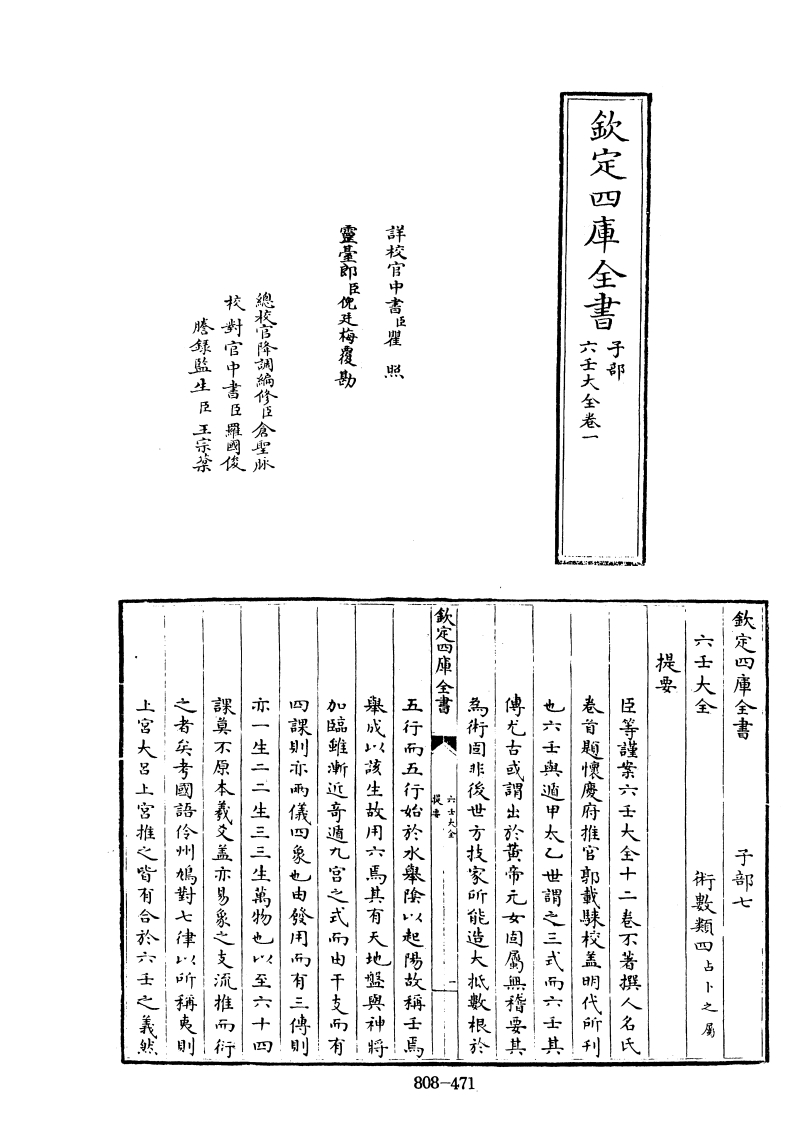 欽定四庫全書
子部
六壬大全卷一
詳校官中書臣瞿照
靈臺郎臣倪廷梅覆勘
總校官降調編修臣倉聖脉
校對官中書臣羅國俊
謄錄監生臣王宗葉
欽定四庫全書 子部七
六壬大全 術數類四占卜之屬
提要
臣等謹案六壬大全十二卷不著撰人名氏
卷首題懷慶府推官郭載騋校盖明代所刊
也六壬與遁甲太乙世謂之三式而六壬其
傳尤古或謂出於黃帝元女固屬無稽要其
為術固非後世方技家所能造大抵數根於
欽定四庫全書 六壬大全 提要 一
五行而五行始於水舉陰以起陽故稱壬焉
舉成以該生故用六焉其有天地盤與神將
加臨雖漸近奇遁九宫之式而由干支而有
四課則亦兩儀四象也由發用而有三傳則
亦一生二二生三三生萬物也以至六十四
課莫不原本羲爻盖亦易象之支流推而衍
之者矣考國語伶州鳩對七律以所稱夷則
上宫大吕上宫推之皆有合於六壬之義然
808-471